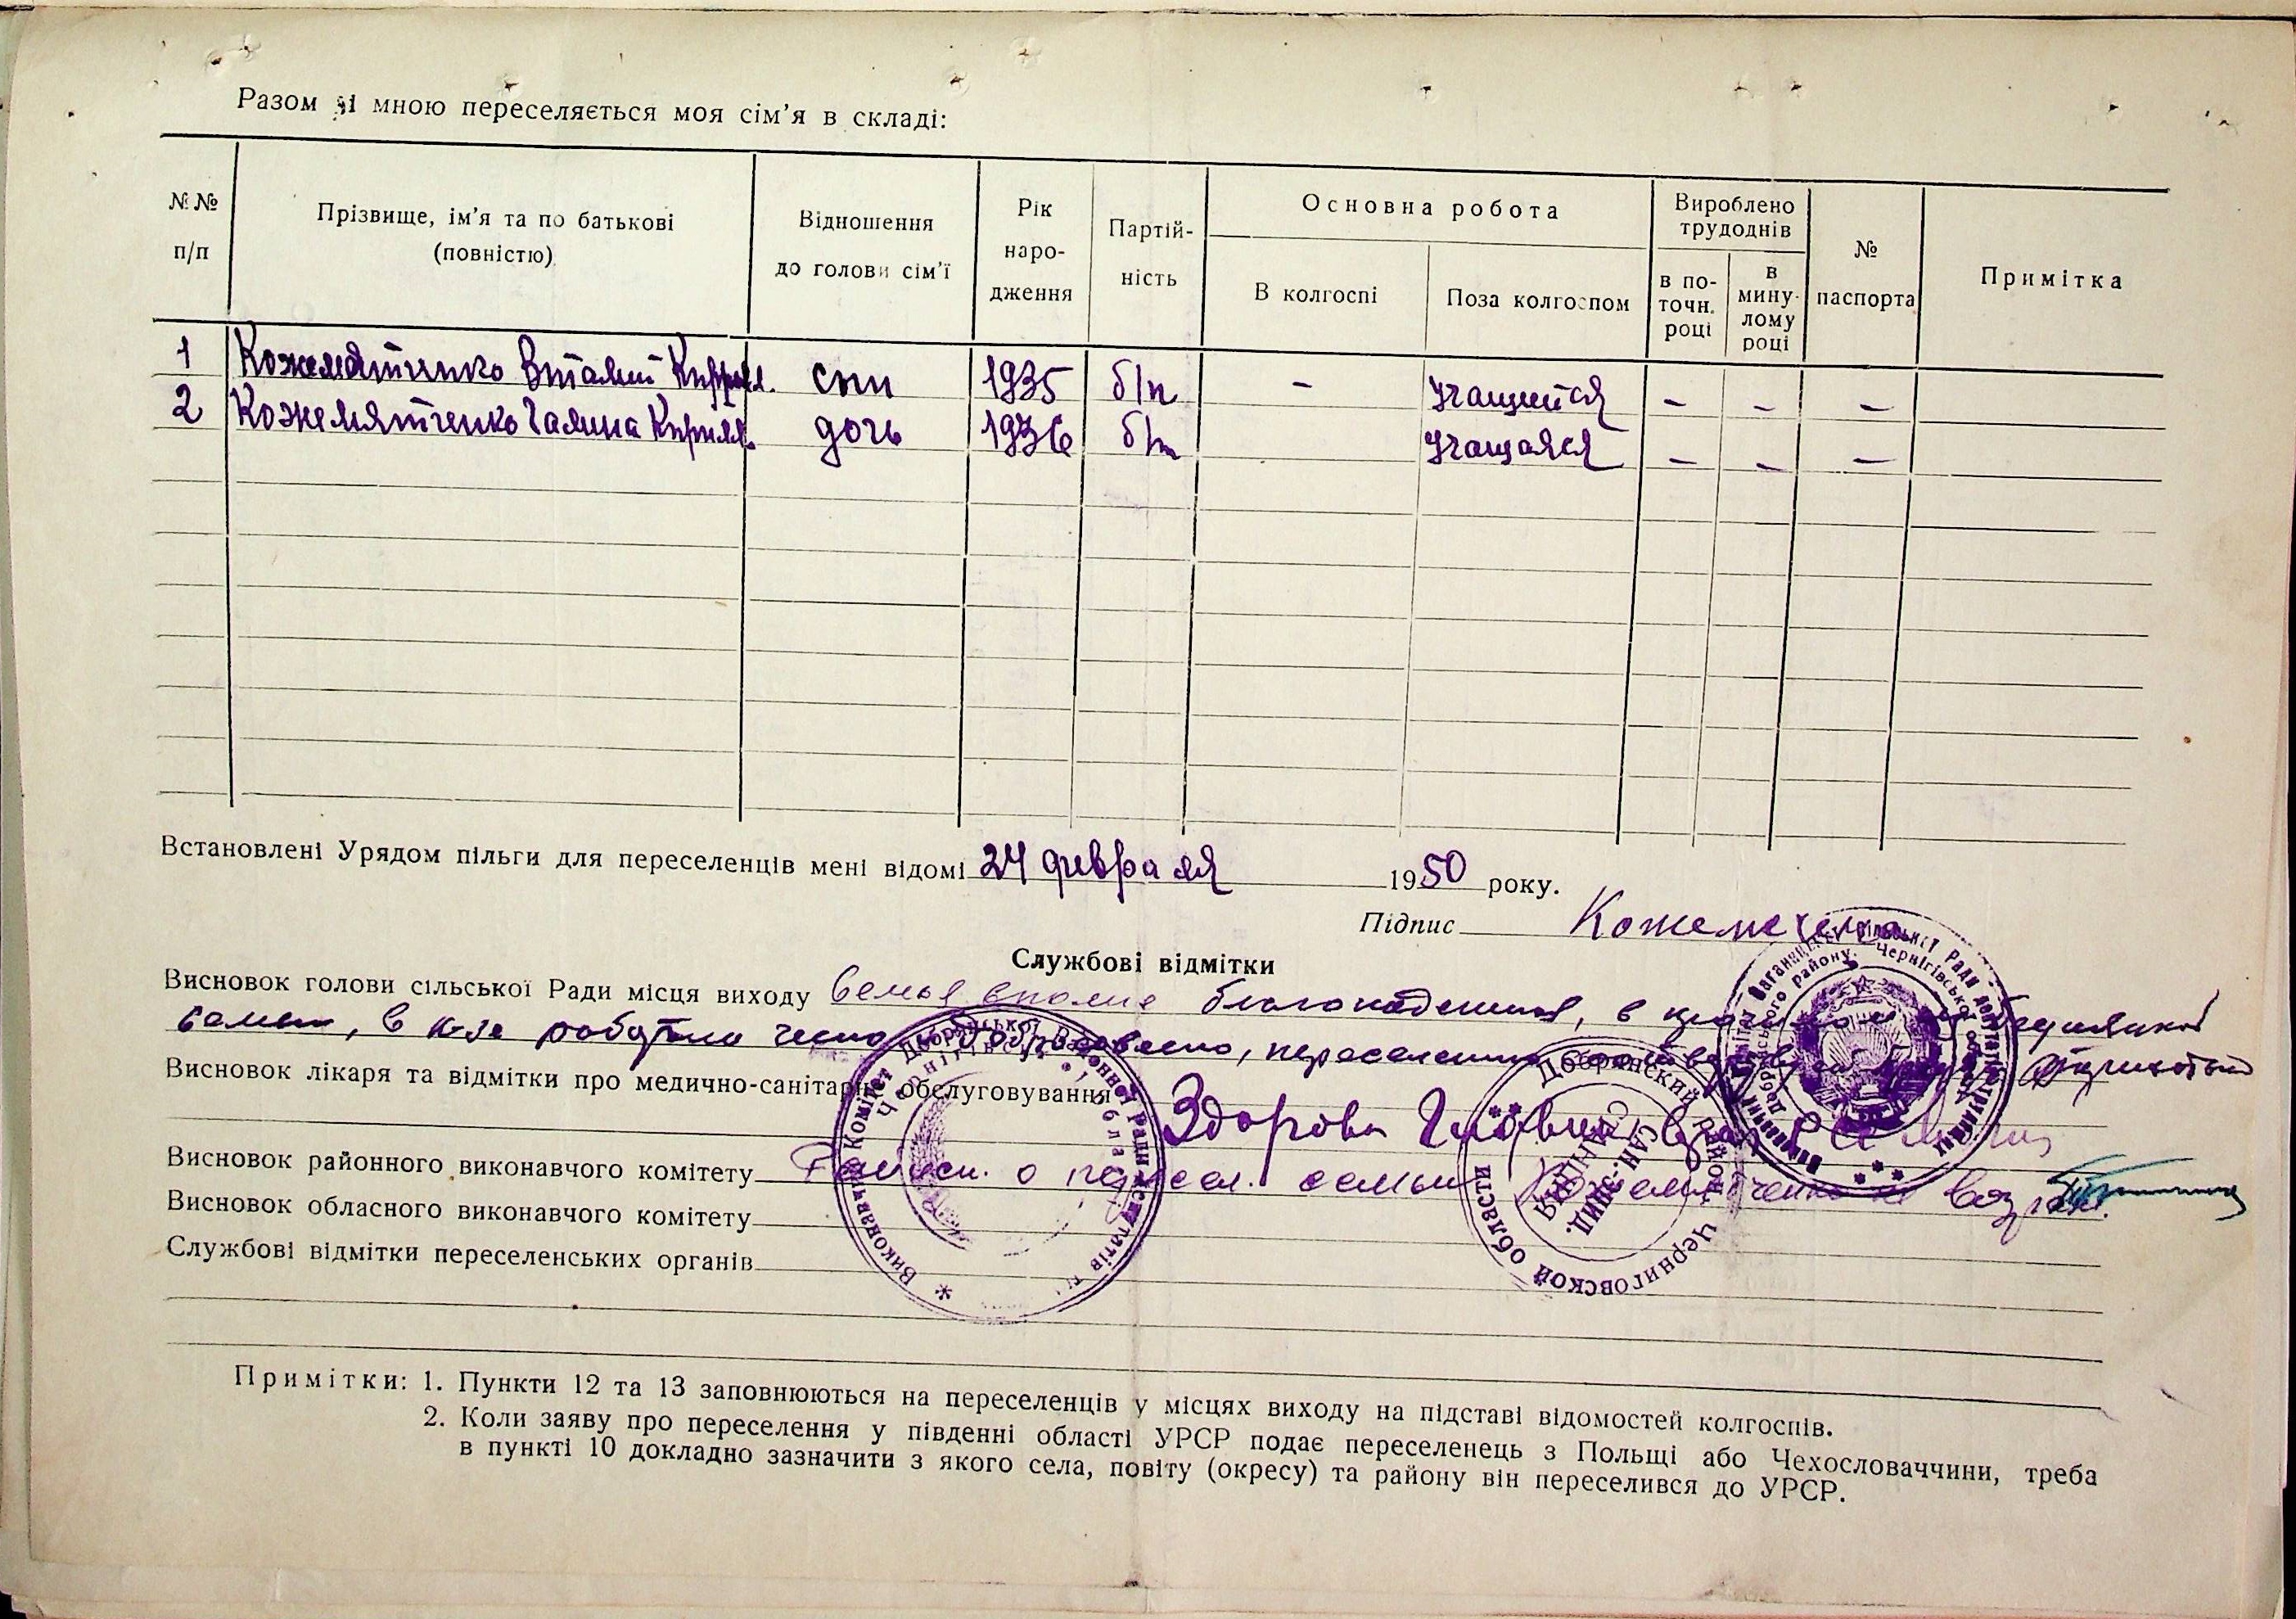 Разом зі мною переселяється моя сім'я в складі:
№№ п/п
Прізвище, ім'я та по батькові (повністю)
Відношення до голови сім'ї
Рік наро- дження
Партій- ність
Основна робота
В колгоспі
Поза колгоспом
Вироблено трудоднів
в по- точн. році
в мину- лому році
№ паспорта
Примітка
1 Кожемятченко Виталий Кирил. сын 1935 б/п - Учащийся - - -
2 Кожемятченко Галина Кирилл. дочь 1936 б/п Учащаяся - - -
Встановлені Урядом пільги для переселенців мені відомі 24 февраля 1950 року.
Підпис
Службові відмітки
Висновок голови сільської Ради місця виходу Семья вполне благонадежная, в
в к-зе работали честно добросовестно,
Висновок лікаря та відмітки про медично-санітарне обслуговування
Здорова
Висновок районного виконавчого комітету о пересел. семьи Кожемятченко не возраж.
Висновок обласного виконавчого комітету
Службові відмітки переселенських органів
Виконавчий Комітет Добрянської Районної Ради депутатів
Чернігівської області
Добрянский район Черниговской области
САН.-ЭПИД. СТАНЦИЯ
Примітки: 1. Пункти 12 та 13 заповнюються на переселенців у місцях виходу на підставі відомостей колгоспів.
2. Коли заяву про переселення у південні області УРСР подає переселенець з Польщі або Чехословаччини, треба
в пункті 10 докладно зазначити з якого села, повіту (окресу) та району він переселився до УРСР.